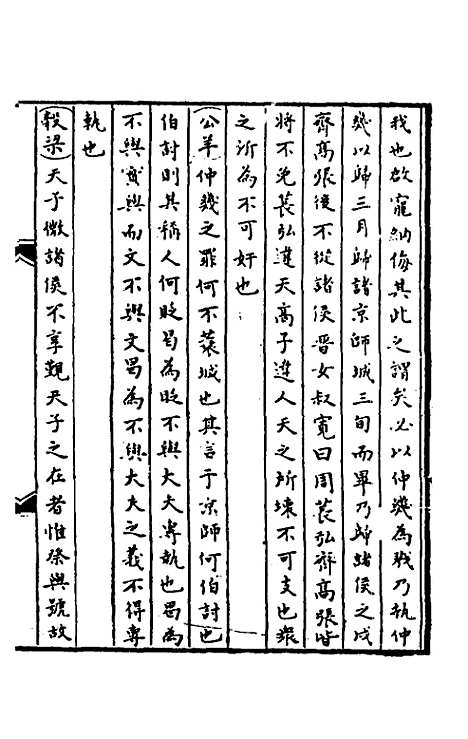 我也啟寵納侮其此之謂矣必以仲幾為戮乃執仲
幾以歸三月歸諸京師城三旬而畢乃歸諸侯之戍
齊高張後不從諸侯晉女叔寬曰周萇弘齊高張皆
將不免萇弘違天高子違人天之所壞不可支也衆
之所為不可奸也
(公羊)仲幾之罪何不蓑城也其言于京師何伯討也
伯討則其稱人何貶曷為貶不與大夫專執也曷為
不與實與而文不與文曷為不與大夫之義不得專
執也
(穀梁)天子微諸侯不享覲天子之在者惟祭與號故